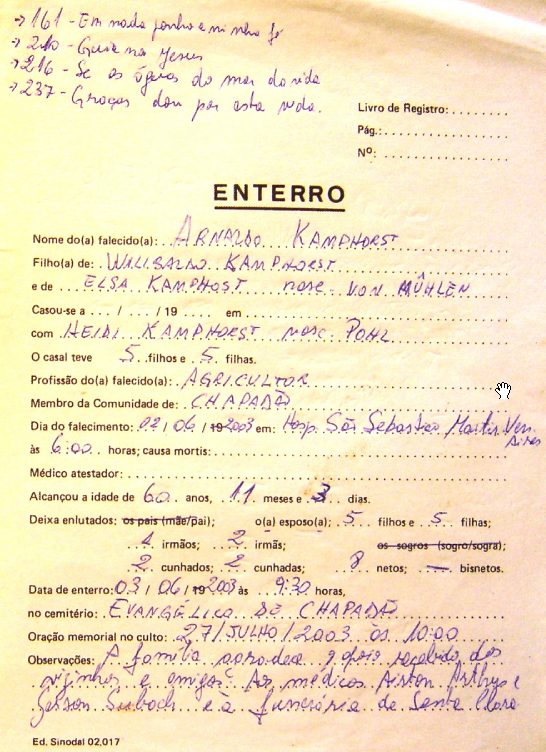 → 161 - Em nada ponho a minha fé
→ 210 - Guia na Jesus
→ 216 - Se as águas do mar da vida
→ 237 - Graças dou por esta vida.
Livro de Registro:
Pág.:
Nº:
ENTERRO
Nome do(a) falecido(a): ARNALDO KAMPHORST
Filho(a) de: WILIBALDO KAMPHORST
e de ELSA KAMPHOST nasc VON MÜHLEN
Casou-se a ... / ... / 19 ... em
com HEIDI KAMPHORST nasc POHL
O casal teve 5 filhos e 5 filhas.
Profissão do(a) falecido(a): AGRICULTOR
Membro da Comunidade de: CHAPADÃO
Dia do falecimento: 02 / 06 / 19 2003 em: Hosp. São Sebastião Martir Ven.
Aires
às 6:00 horas; causa mortis:
Médico atestador:
Alcançou a idade de 60 anos, 11 meses e 3 dias.
Deixa enlutados: os pais (mãe/pai); o(a) esposo(a); 5 filhos e 5 filhas;
irmãos; 2 irmãs; os sogros (sogro/sogra);
2 cunhados; 2 cunhadas; 8 netos; — bisnetos.
Data de enterro: 03 / 06 / 19 2003 às 9:30 horas,
no cemitério: EVANGÉLICO DE CHAPADÃO
Oração memorial no culto: 27 / JULHO / 2003 às 10:00
Observações: A família agradece o apoio recebido dos
vizinhos e amigos. Aos médicos Airton Arthus e
Gerson e a funerária de Santa Clara
Ed. Sinodal 02,017